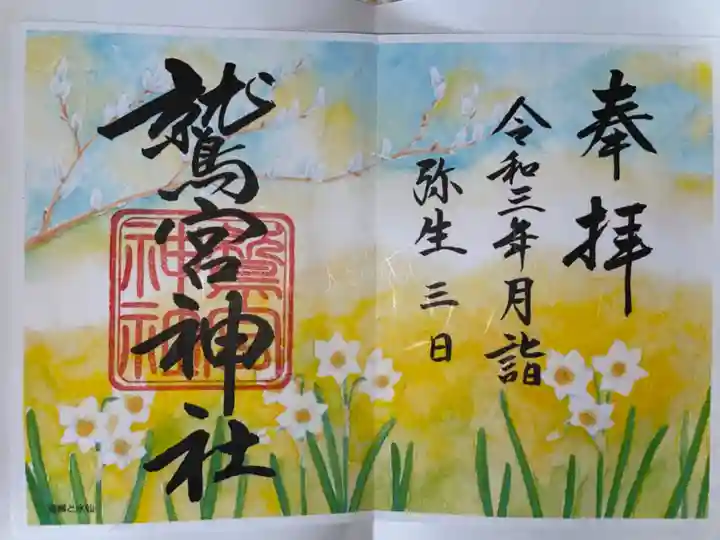 奉拝
令和三年月詣
弥生三日
鷲宮神社
鷲宮
神社